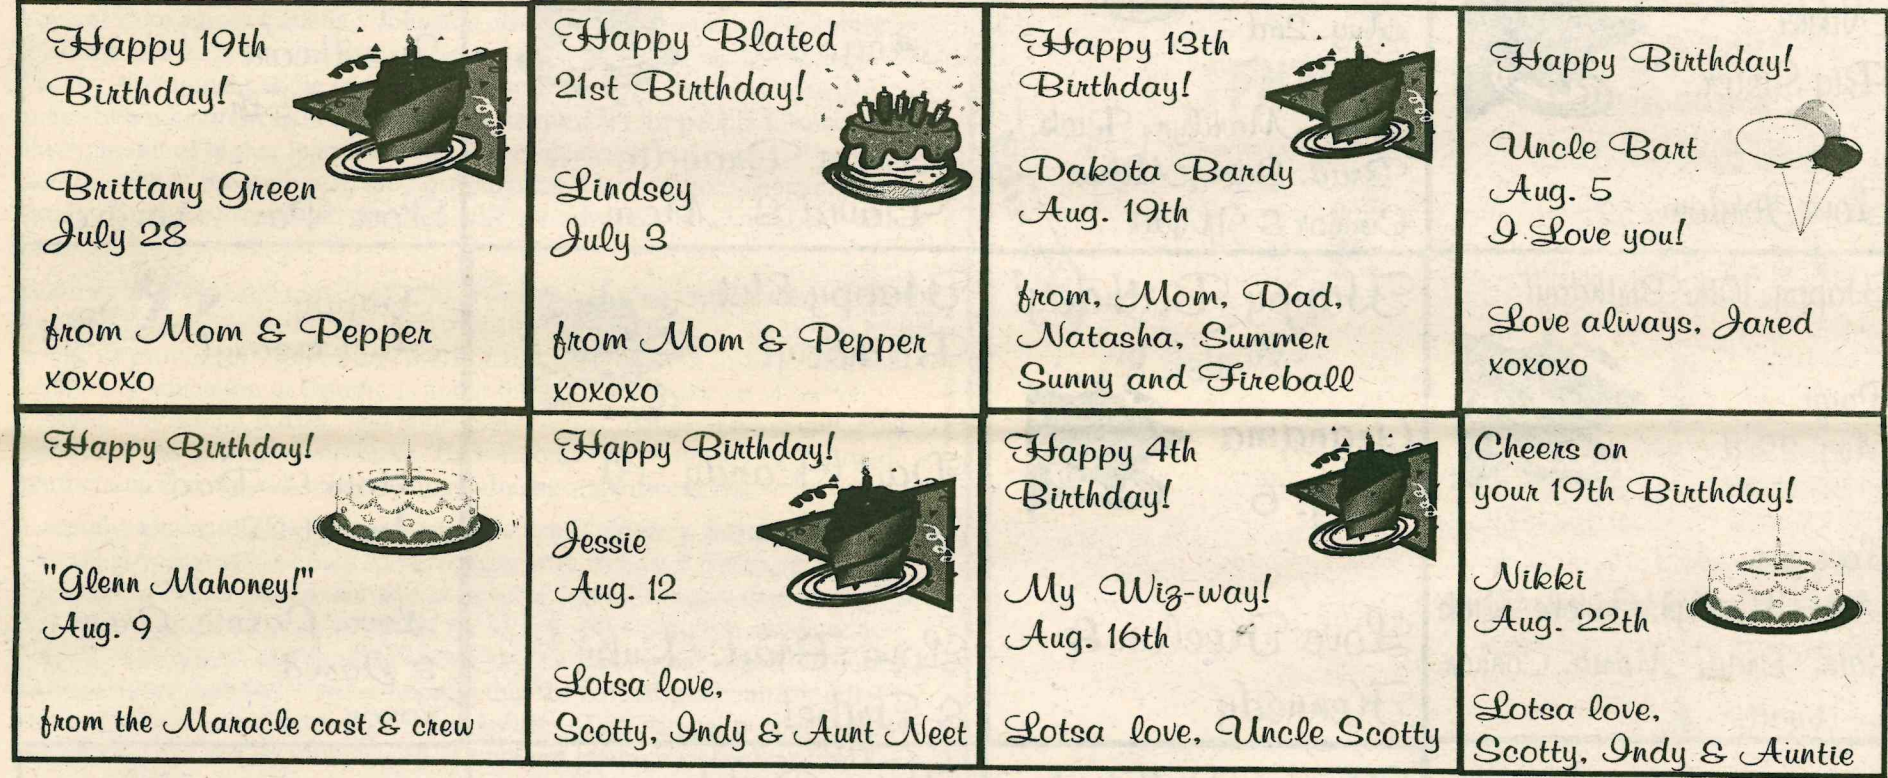 Happy 19th
Birthday!
Brittany Green
July 28
from Mom & Pepper
xoxoxo
Happy Blated
21st Birthday!
Lindsey
July 3
from Mom & Pepper
xoxoxo
Happy 13th
Birthday!
Dakota Bardy
Aug. 19th
from, Mom, Dad,
Natasha, Summer
Sunny and Fireball
Happy Birthday!
Uncle Bart
Aug. 5
I Love you!
Love always, Jared
xoxoxo
Happy Birthday!
"Glenn Mahoney!"
Aug. 9
from the Maracle cast & crew
Happy Birthday!
Jessie
Aug. 12
Lotsa love,
Scotty, Indy & Aunt Neet
Happy 4th
Birthday!
My Wiz-way!
Aug. 16th
Lotsa love, Uncle Scotty
Cheers on
your 19th Birthday!
Nikki
Aug. 22th
Lotsa love,
Scotty, Indy & Auntie